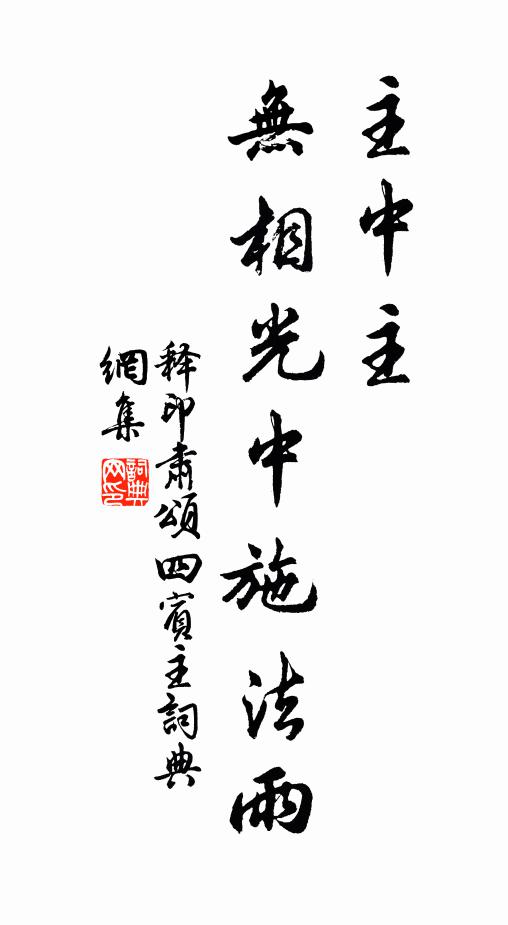 主中主
無相光中施法雨
释印肅頌四賓主詞典
網集
詞典
网印